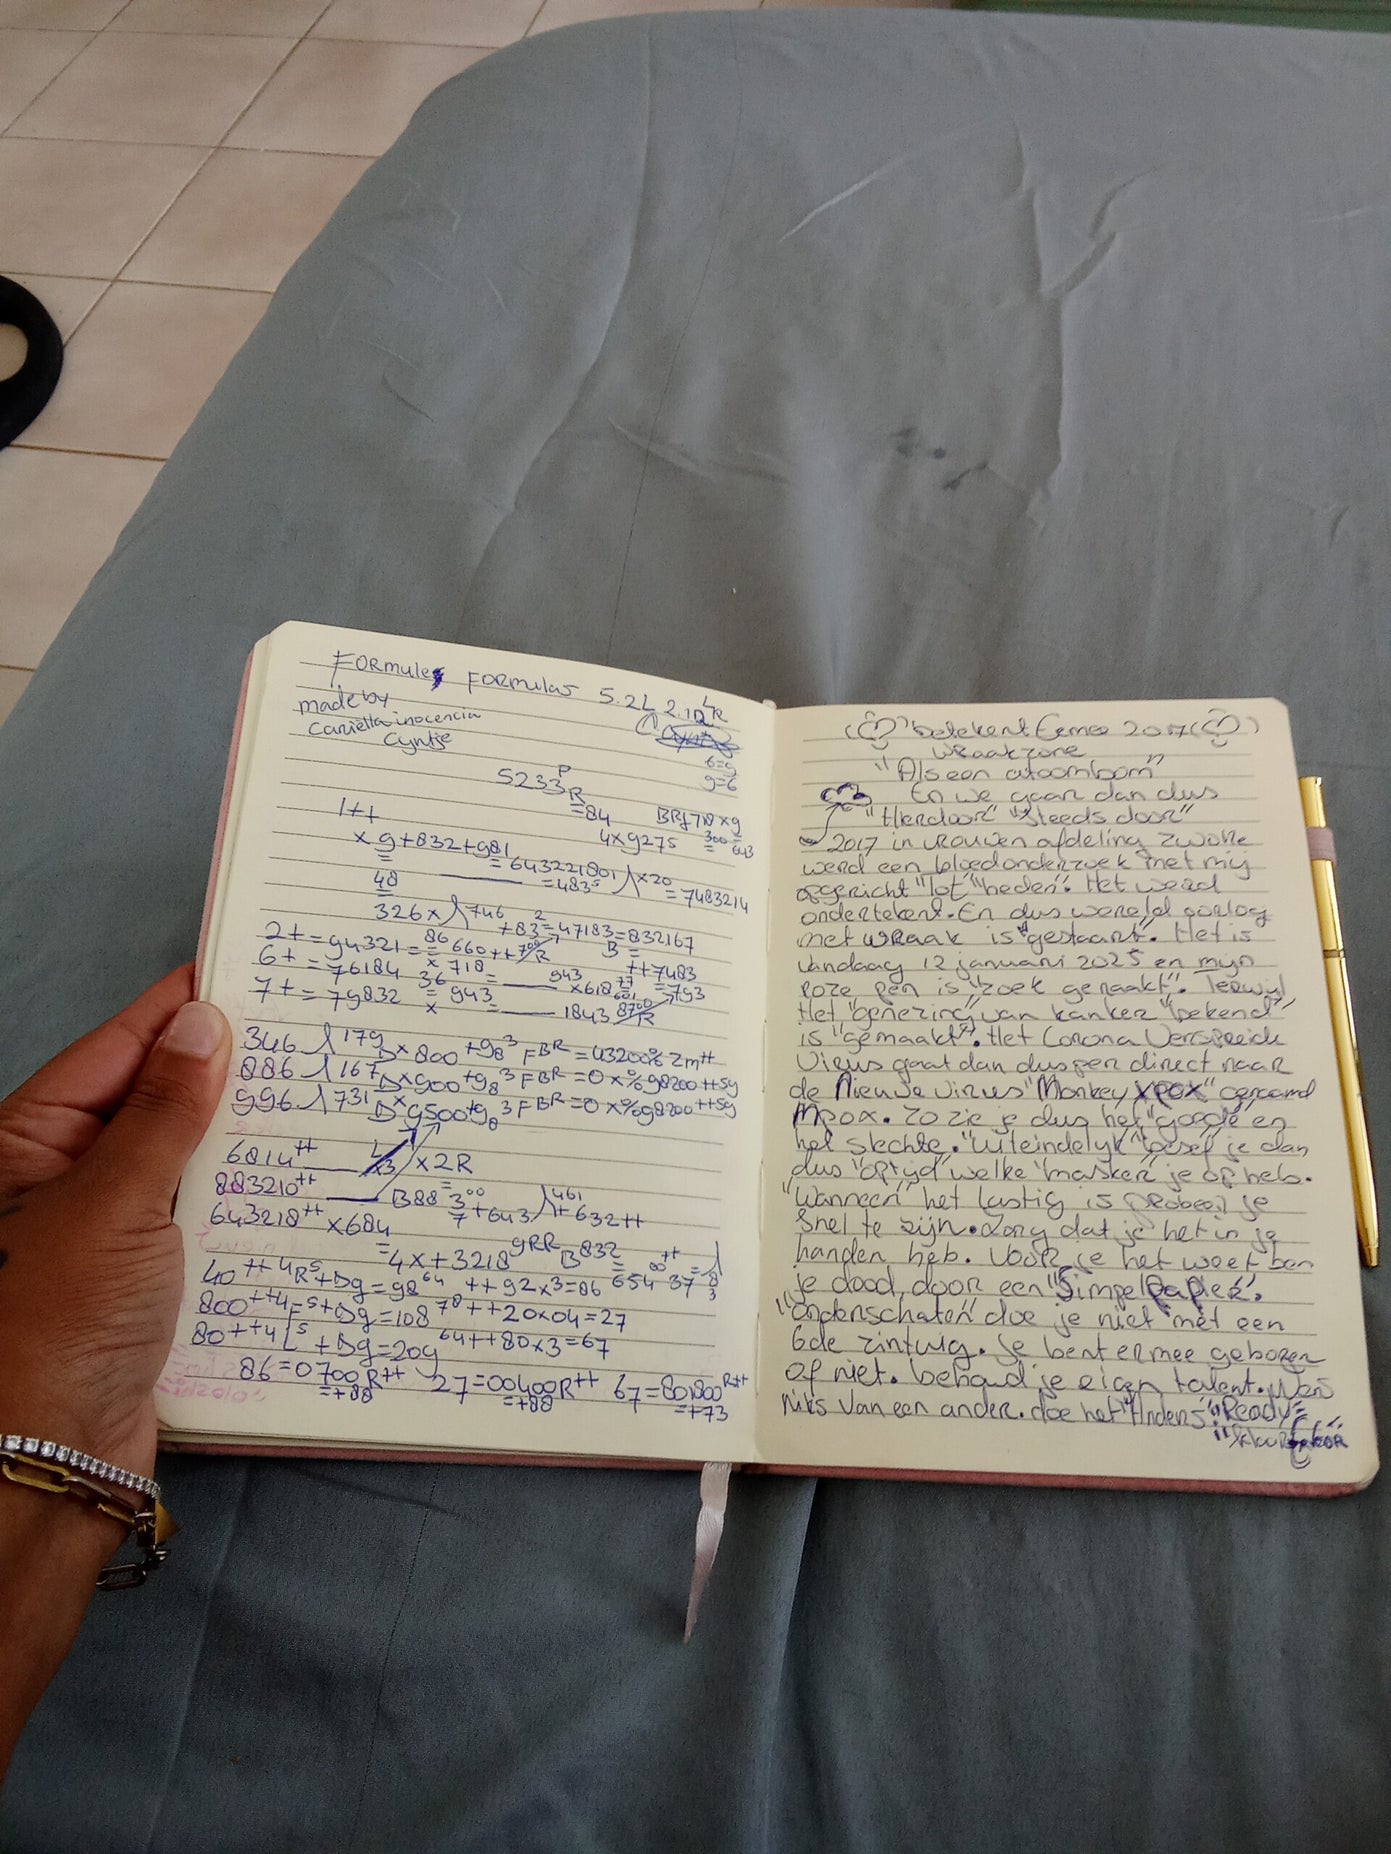 Formules Formulas 5.2L 2.1
made by
Cariëtta inocencia
Cyntje
6=g
g=6
5233
=84
1++
4xg275
x g+832+g81
=643221801
x20
=483⁵
=7483214
48
326x 746
+83²=47183=832167
2+=94321= 86 660++
6+=76184 x 718=
++7483
7+=79832 36 943=
943 x618
=793
1843
346 179 x800+g8³ FBR=43200% 2m++
886 167 x900+g8³ FBR=0x%g8200++5g
996 731 x g500+g8³ FBR=0x%g8200++5g
6814++ x2R
883210++ B88 3⁰⁰ +643 461 +632++
643218++ x684
=4x+3218 gRR B 832
40++4R⁵+Dg=98⁶⁴ ++92x3=86 654 37
800++4F⁵+Dg=108⁷⁸++20x04=27
80++4L⁵+Dg=209⁶⁴++80x3=67
86=0700R++ 27=00400R++ 67=
=+88 =+88 =+73
betekent 2017
Wraakzone
"Als een atoombom"
En we gaan dan dus
"Herdoor" "steeds door"
2017 in vrouwen afdeling Zwolle
werd een bloedonderzoek met mij
opgericht "tot" "heden". Het werd
ondertekent. En dus wereld oorlog
met wraak is "gestaart". Het is
Vandaag 12 januari 2025 en mijn
roze pen is "zoek geraakt". Terwijl
Het "genezing" van kanker "bekend"
is "gemaakt". Het Corona Verspreide
Virus gaat dan dus per direct naar
de Nieuwe virus "Monkey xpox" genaamd
Mpox. Zo zie je dus het "goede en
het slechte. "Uiteindelijk" besef je dan
dus "optijd" welke "masker" je op heb.
"Wanneer" het lastig is probeer je
snel te zijn. Zorg dat je het in je
handen heb. Voor je het weet ben
je dood door een "Simpel papier".
"onderschaten" doe je niet met een
6de zintuig. Je bent ermee geboren
of niet. behoud je eigen talent. Wens
niks van een ander. doe het "Anders". "Ready"